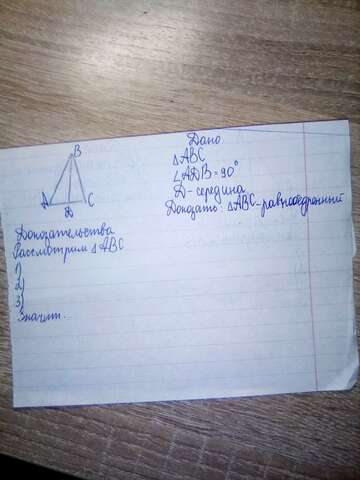 B
A
D
C
Дано
△ABC
∠ADB = 90°
D - середина
Доказать: △ABC - равнобедренный
Доказательства
Рассмотрим △ABC
1)
2)
3)
Значит.